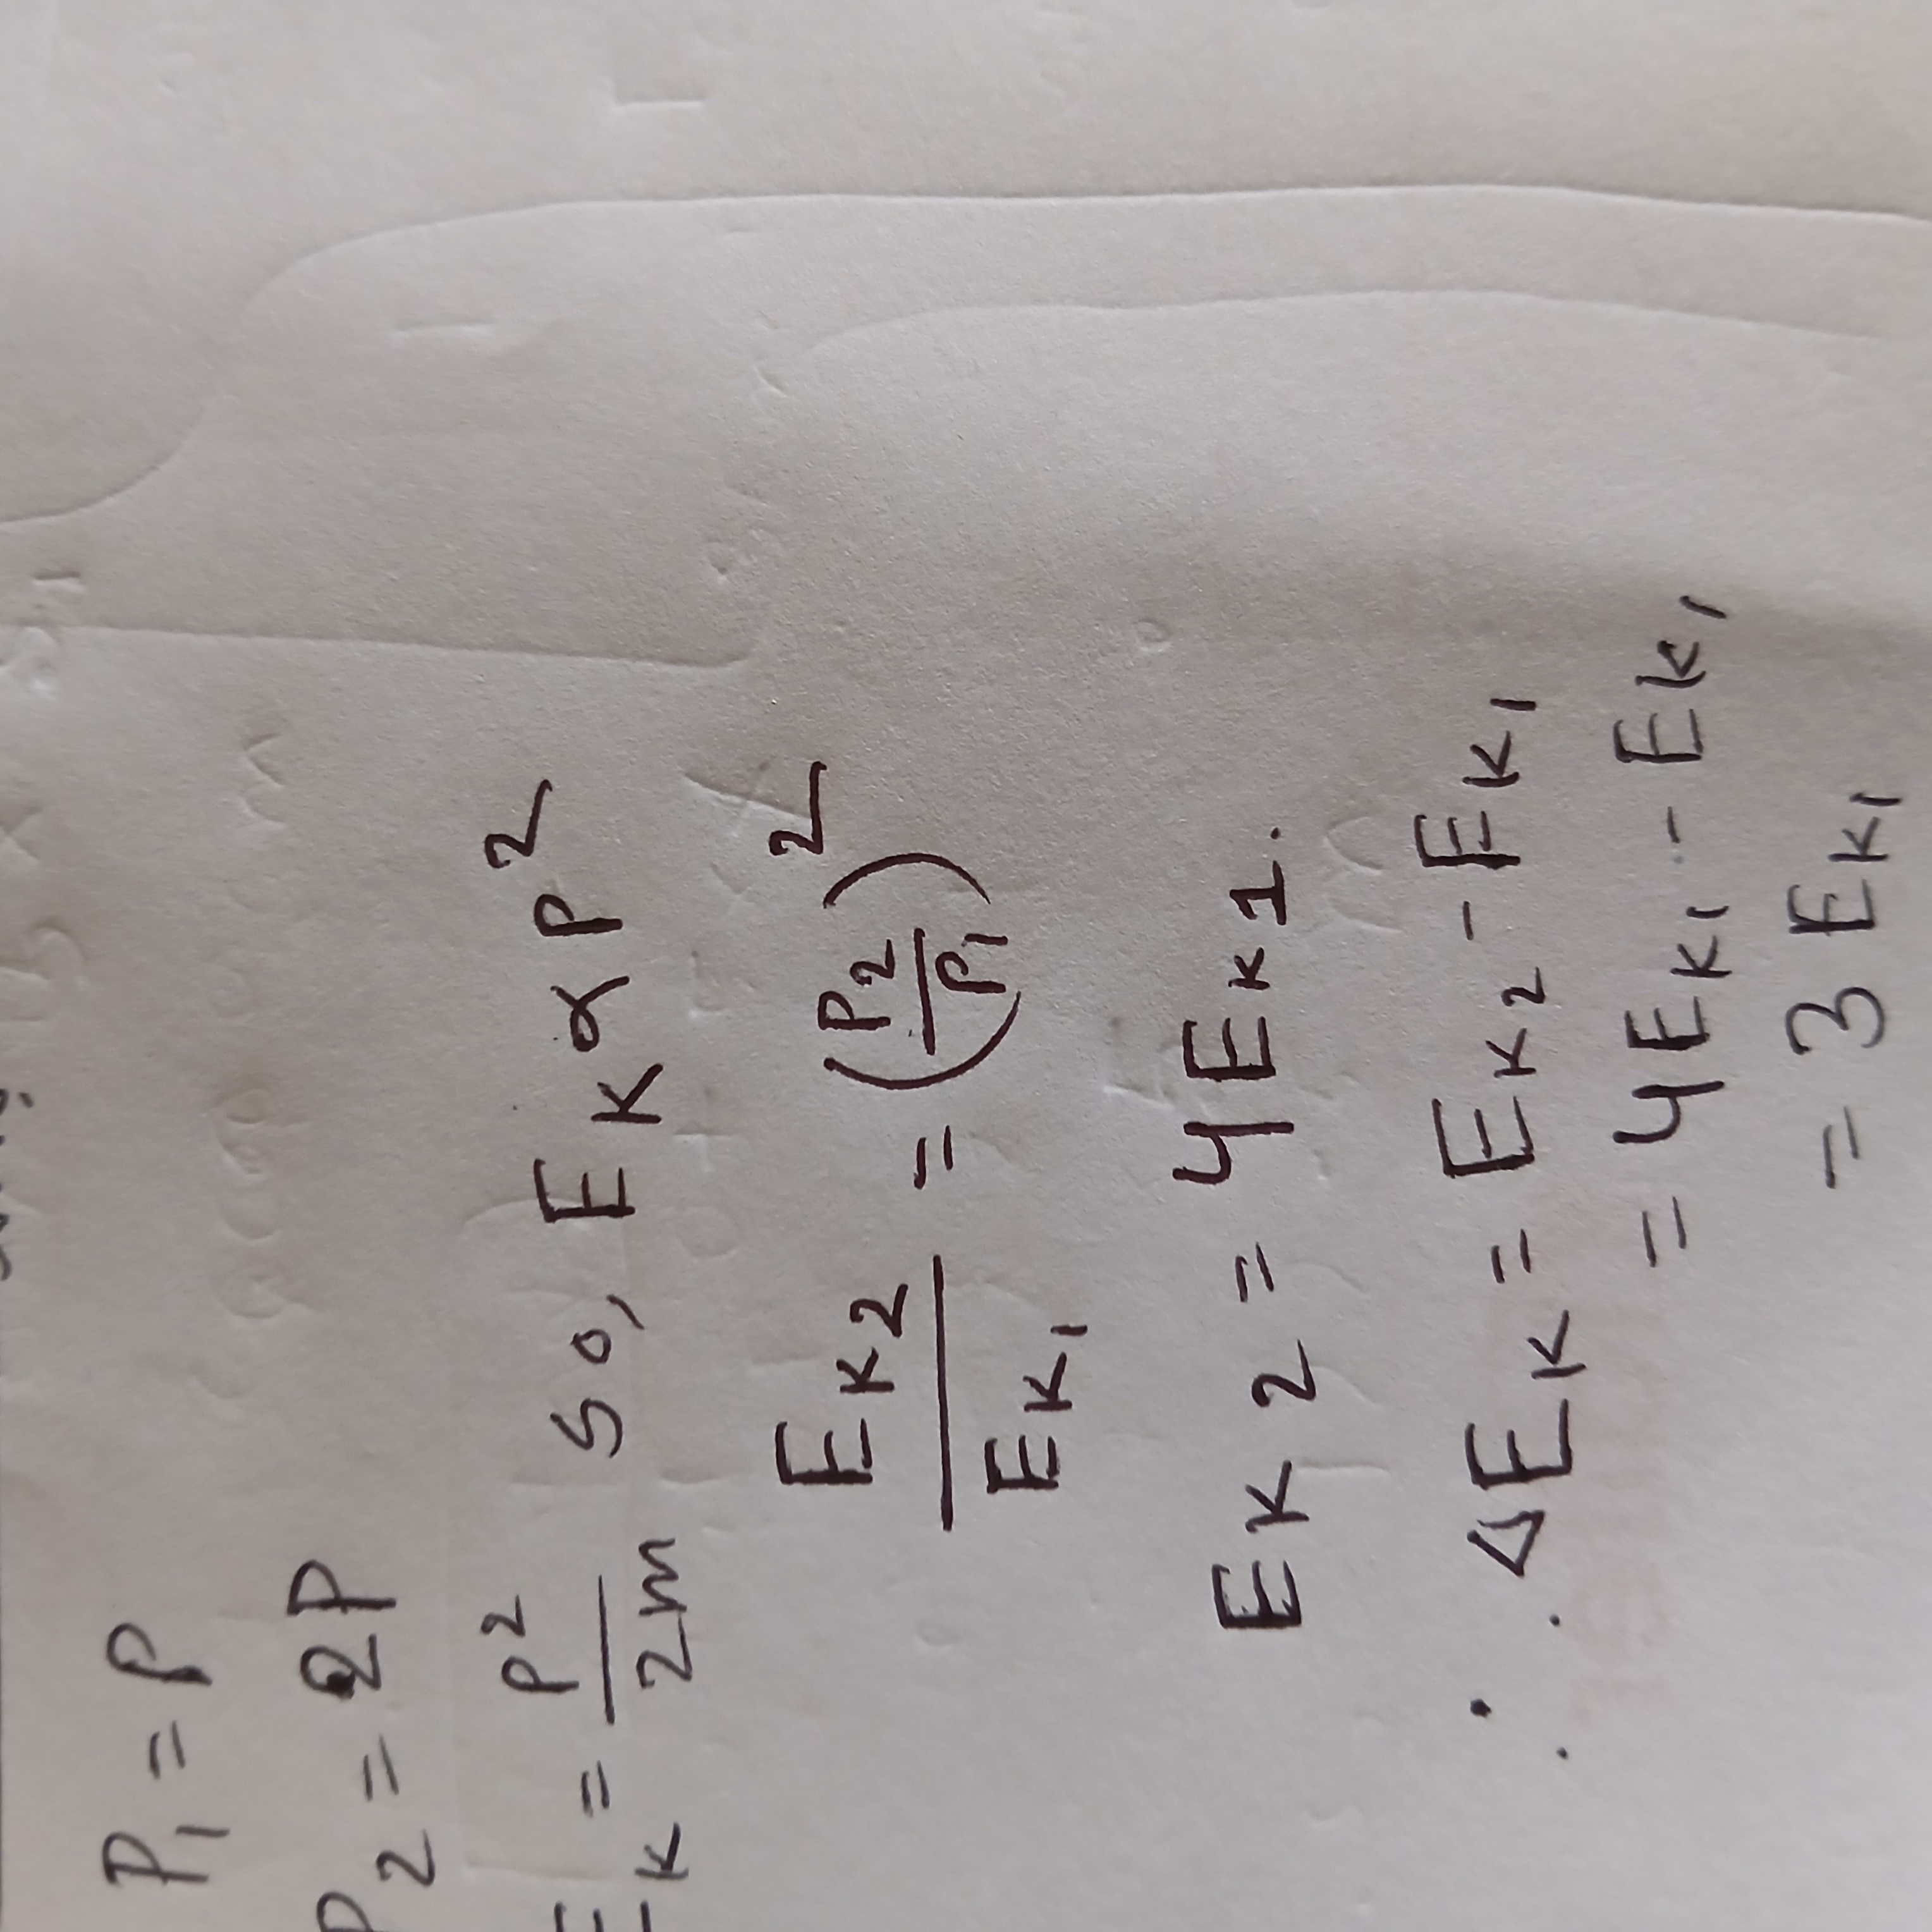 P₁ = P
P₂ = 2P
Eₖ = P²/2m so, Eₖ ∝ P²
Eₖ₂/Eₖ₁ = (P₂/P₁)²
Eₖ₂ = 4Eₖ₁.
∴ ΔEₖ = Eₖ₂ - Eₖ₁
= 4Eₖ₁ - Eₖ₁
= 3Eₖ₁